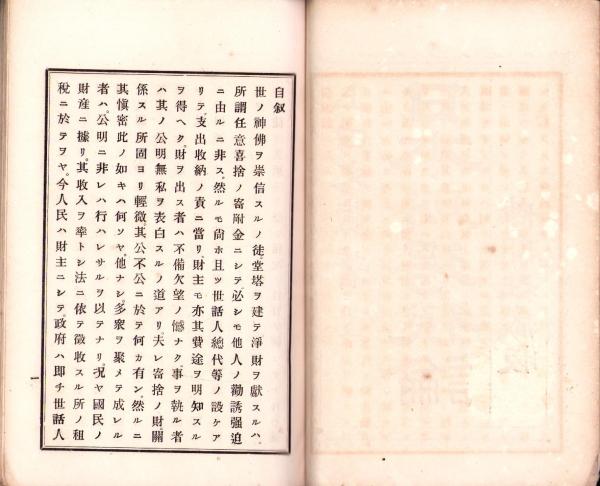 自叙
世ノ神佛ヲ崇信スルノ徒堂塔ヲ建テ淨財ヲ獻スルハ、
所謂任意喜捨ノ寄附金ニシテ、必シモ他人ノ勸誘强迫
ニ由ルニ非ス、然ルモ尙ホ且ツ世話人總代等ノ設ケア
リテ、支出收納ノ責ニ當リ、財主モ亦其費途ヲ明知スル
ヲ得ヘク、財ヲ出ス者ハ不備欠望ノ憾ナク事ヲ執ル者
ハ其ノ公明無私ヲ表白スルノ道アリ、夫レ寄捨ノ財、關
係スル所固ヨリ輕微、其公不公ニ於テ何カ有ン、然ルニ
其愼密此ノ如キハ何ソヤ、他ナシ多衆ヲ聚メテ成レル
者ハ、公明ニ非レハ行ハレサルヲ以テナリ、況ヤ國民ノ
財産ニ據リ、其收入ヲ率トシ法ニ依テ徵收スル所ノ租
稅ニ於テヲヤ、今人民ハ財主ニシテ、政府ハ卽チ世話人
一